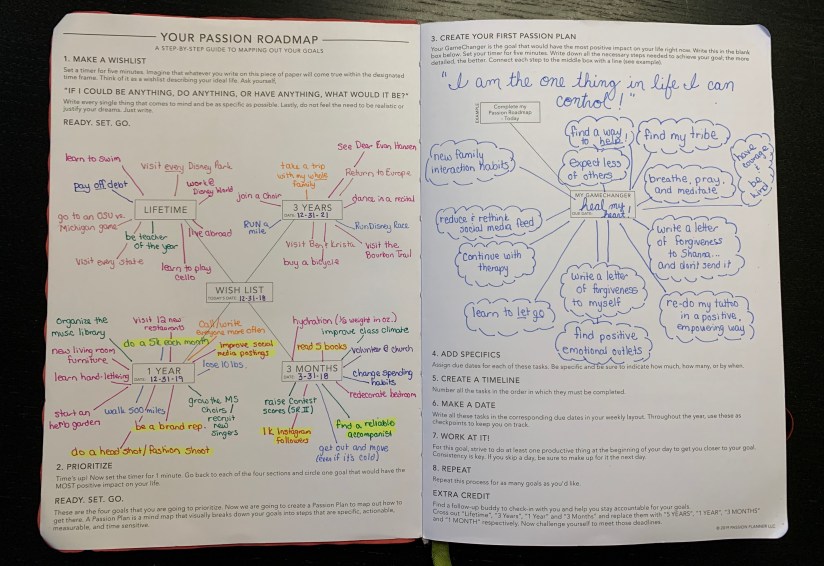 YOUR PASSION ROADMAP
A STEP-BY-STEP GUIDE TO MAPPING OUT YOUR GOALS
1. MAKE A WISHLIST
Set a timer for five minutes. Imagine that whatever you write on this piece of paper will come true within the designated
time frame. Think of it as a wishlist describing your ideal life. Ask yourself,
"IF I COULD BE ANYTHING, DO ANYTHING, OR HAVE ANYTHING, WHAT WOULD IT BE?"
Write every single thing that comes to mind and be as specific as possible. Lastly, do not feel the need to be realistic or
justify your dreams. Just write.
READY. SET. GO.
learn to swim
visit every Disney Park
pay off debt
work @
Disney World
LIFETIME
go to an OSU vs.
Michigan game
be teacher
of the year
live abroad
visit every state
learn to play
cello
see Dear Evan Hansen
take a trip
with my whole
family
Return to Europe
join a choir
dance in a recital
3 YEARS
DATE: 12-31-21
RUN a
mile
Run Disney Race
visit Bey & Krista
visit the
Bourbon Trail
buy a bicycle
WISH LIST
TODAY'S DATE: 12-31-18
organize the
music library
visit 12 new
restaurants
Call/write
everyone more often
do a 5k each month
new living room
furniture
improve social
media postings
lose 10 lbs.
learn hand-lettering
1 YEAR
DATE: 12-31-19
start an
herb garden
walk 500 miles
grow the MS
choirs /
recruit
new
singers
be a brand rep.
do a head shot/fashion shoot
hydration (½ weight in oz.)
improve class climate
read 5 books
volunteer @ church
3 MONTHS
DATE: 3-31-18
change spending
habits
redecorate bedroom
raise contest
scores (SR II)
find a reliable
accompanist
1K Instagram
followers
get out and move
(even if it's cold)
2. PRIORITIZE
Time's up! Now set the timer for 1 minute. Go back to each of the four sections and circle one goal that would have the
MOST positive impact on your life.
READY. SET. GO.
These are the four goals that you are going to prioritize. Now we are going to create a Passion Plan to map out how to
get there. A Passion Plan is a mind map that visually breaks down your goals into steps that are specific, actionable,
measurable, and time sensitive.
3. CREATE YOUR FIRST PASSION PLAN
Your GameChanger is the goal that would have the most positive impact on your life right now. Write this in the blank
box below. Set your timer for five minutes. Write down all the necessary steps needed to achieve your goal; the more
detailed, the better. Connect each step to the middle box with a line (see example).
"I am the one thing in life I can
control!"
EXAMPLE
Complete my
Passion Roadmap
- Today
find a way
to help!
find my tribe
new family
interaction habits
expect less
of others
breathe, pray,
and meditate
have
courage
&
be
kind
MY GAMECHANGER
heal my
heart!
DUE DATE:
reduce & rethink
social media feed
write a letter
of forgiveness
to Shanna...
and don't send it
continue with
therapy
write a letter
of forgiveness
to myself
learn to let go
re-do my tattoo
in a positive,
empowering way
find positive
emotional outlets
4. ADD SPECIFICS
Assign due dates for each of these tasks. Be specific and be sure to indicate how much, how many, or by when.
5. CREATE A TIMELINE
Number all the tasks in the order in which they must be completed.
6. MAKE A DATE
Write all these tasks in the corresponding due dates in your weekly layout. Throughout the year, use these as
checkpoints to keep you on track.
7. WORK AT IT!
For this goal, strive to do at least one productive thing at the beginning of your day to get you closer to your goal.
Consistency is key. If you skip a day, be sure to make up for it the next day.
8. REPEAT
Repeat this process for as many goals as you'd like.
EXTRA CREDIT
Find a follow-up buddy to check-in with you and help you stay accountable for your goals.
Cross out "Lifetime", "3 Years", "1 Year" and "3 Months" and replace them with "5 YEARS", "1 YEAR", "3 MONTHS"
and "1 MONTH" respectively. Now challenge yourself to meet those deadlines.
© 2019 PASSION PLANNER LLC.